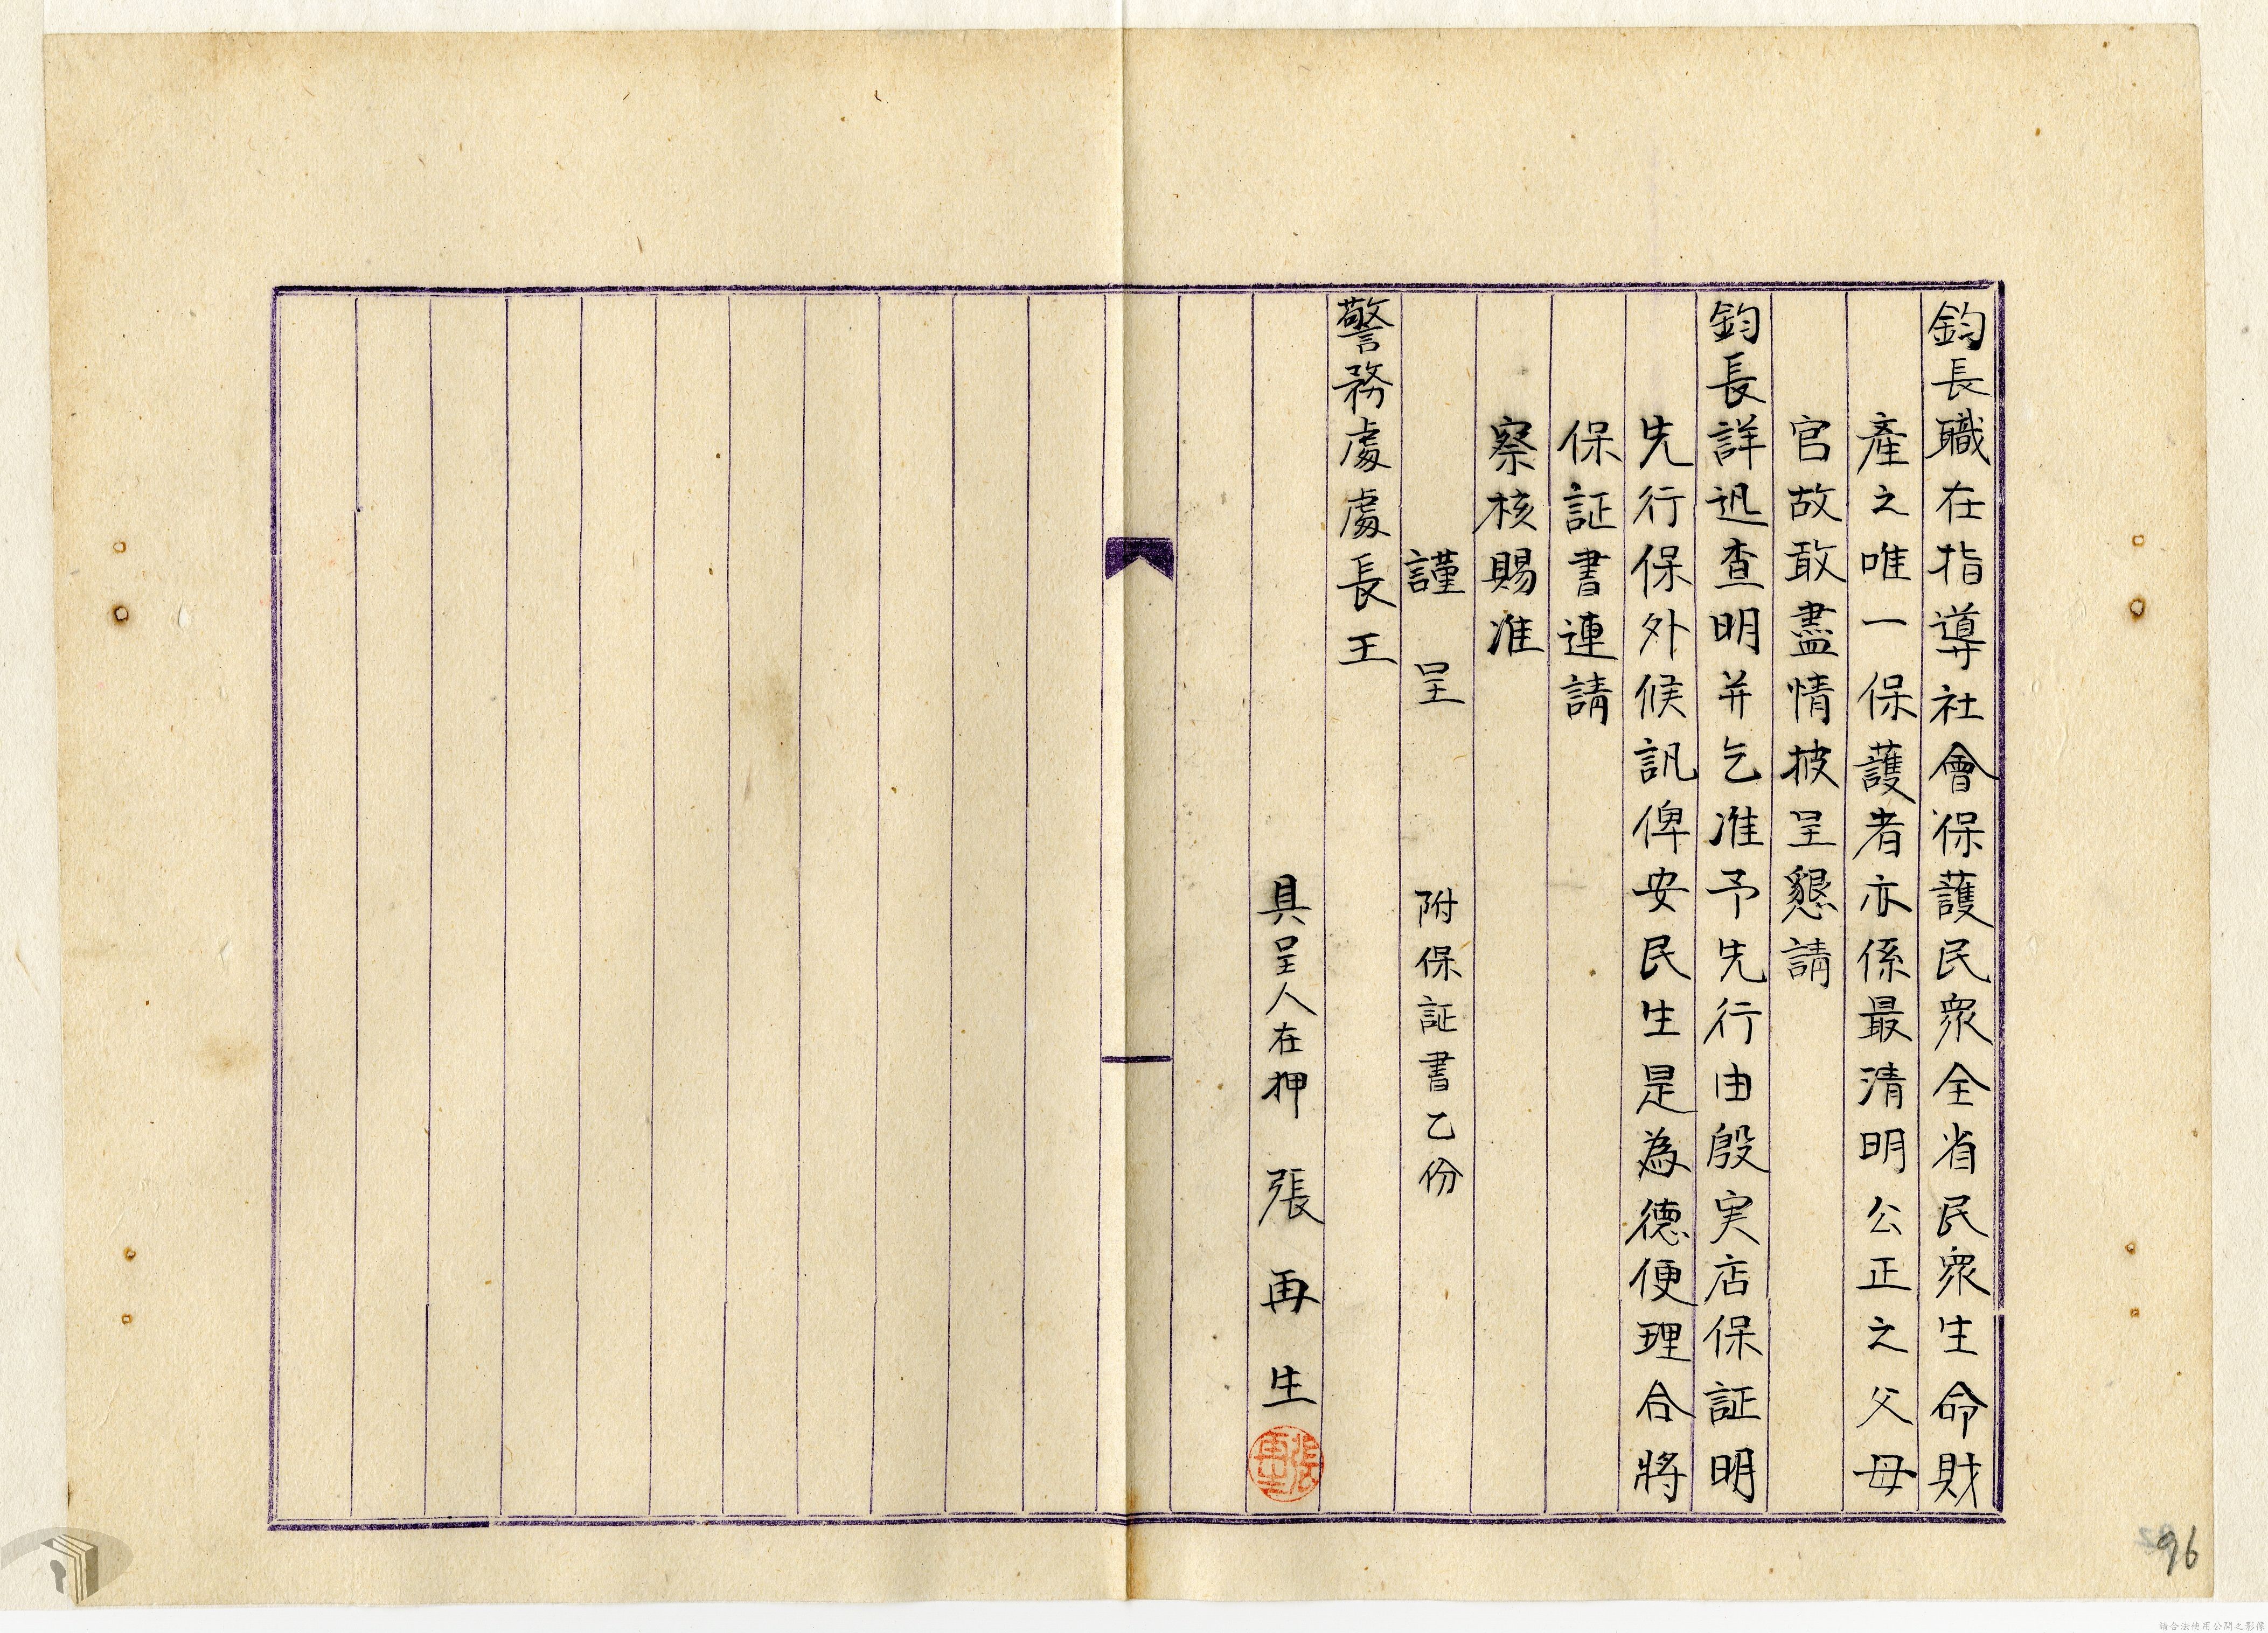 鈞長職在指導社會保護民眾全省民眾生命財
產之唯一保護者亦係最清明公正之父母
官故敢盡情披呈懇請
鈞長詳迅查明并乞准予先行由殷実店保証明
先行保外候訊俾安民生是為德便理合將
保証書連請
察核賜准
謹呈 附保証書乙份
警務處處長王
具呈人在押 張再生
張再生
96
請合法使用公開之影像